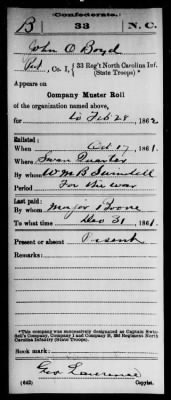 Confederate.
B 33 N.C.
John O Boyd
Pvt, Co. I, 33 Reg't North Carolina Inf.
(State Troops)*
Appears on
Company Muster Roll
of the organization named above,
for to Feb 28, 1862
Enlisted:
When Oct 17, 1861.
Where Swan Quarter
By whom Wm B Swindell
Period For the war
Last paid:
By whom Major Boone
To what time Dec 31, 1861.
Present or absent Present
Remarks:
*This company was successively designated as Captain Swin-
dell's Company, Company I and Company H, 33d Regiment North
Carolina Infantry (State Troops).
Book mark:
Geo Lawrence
(642) Copyist.